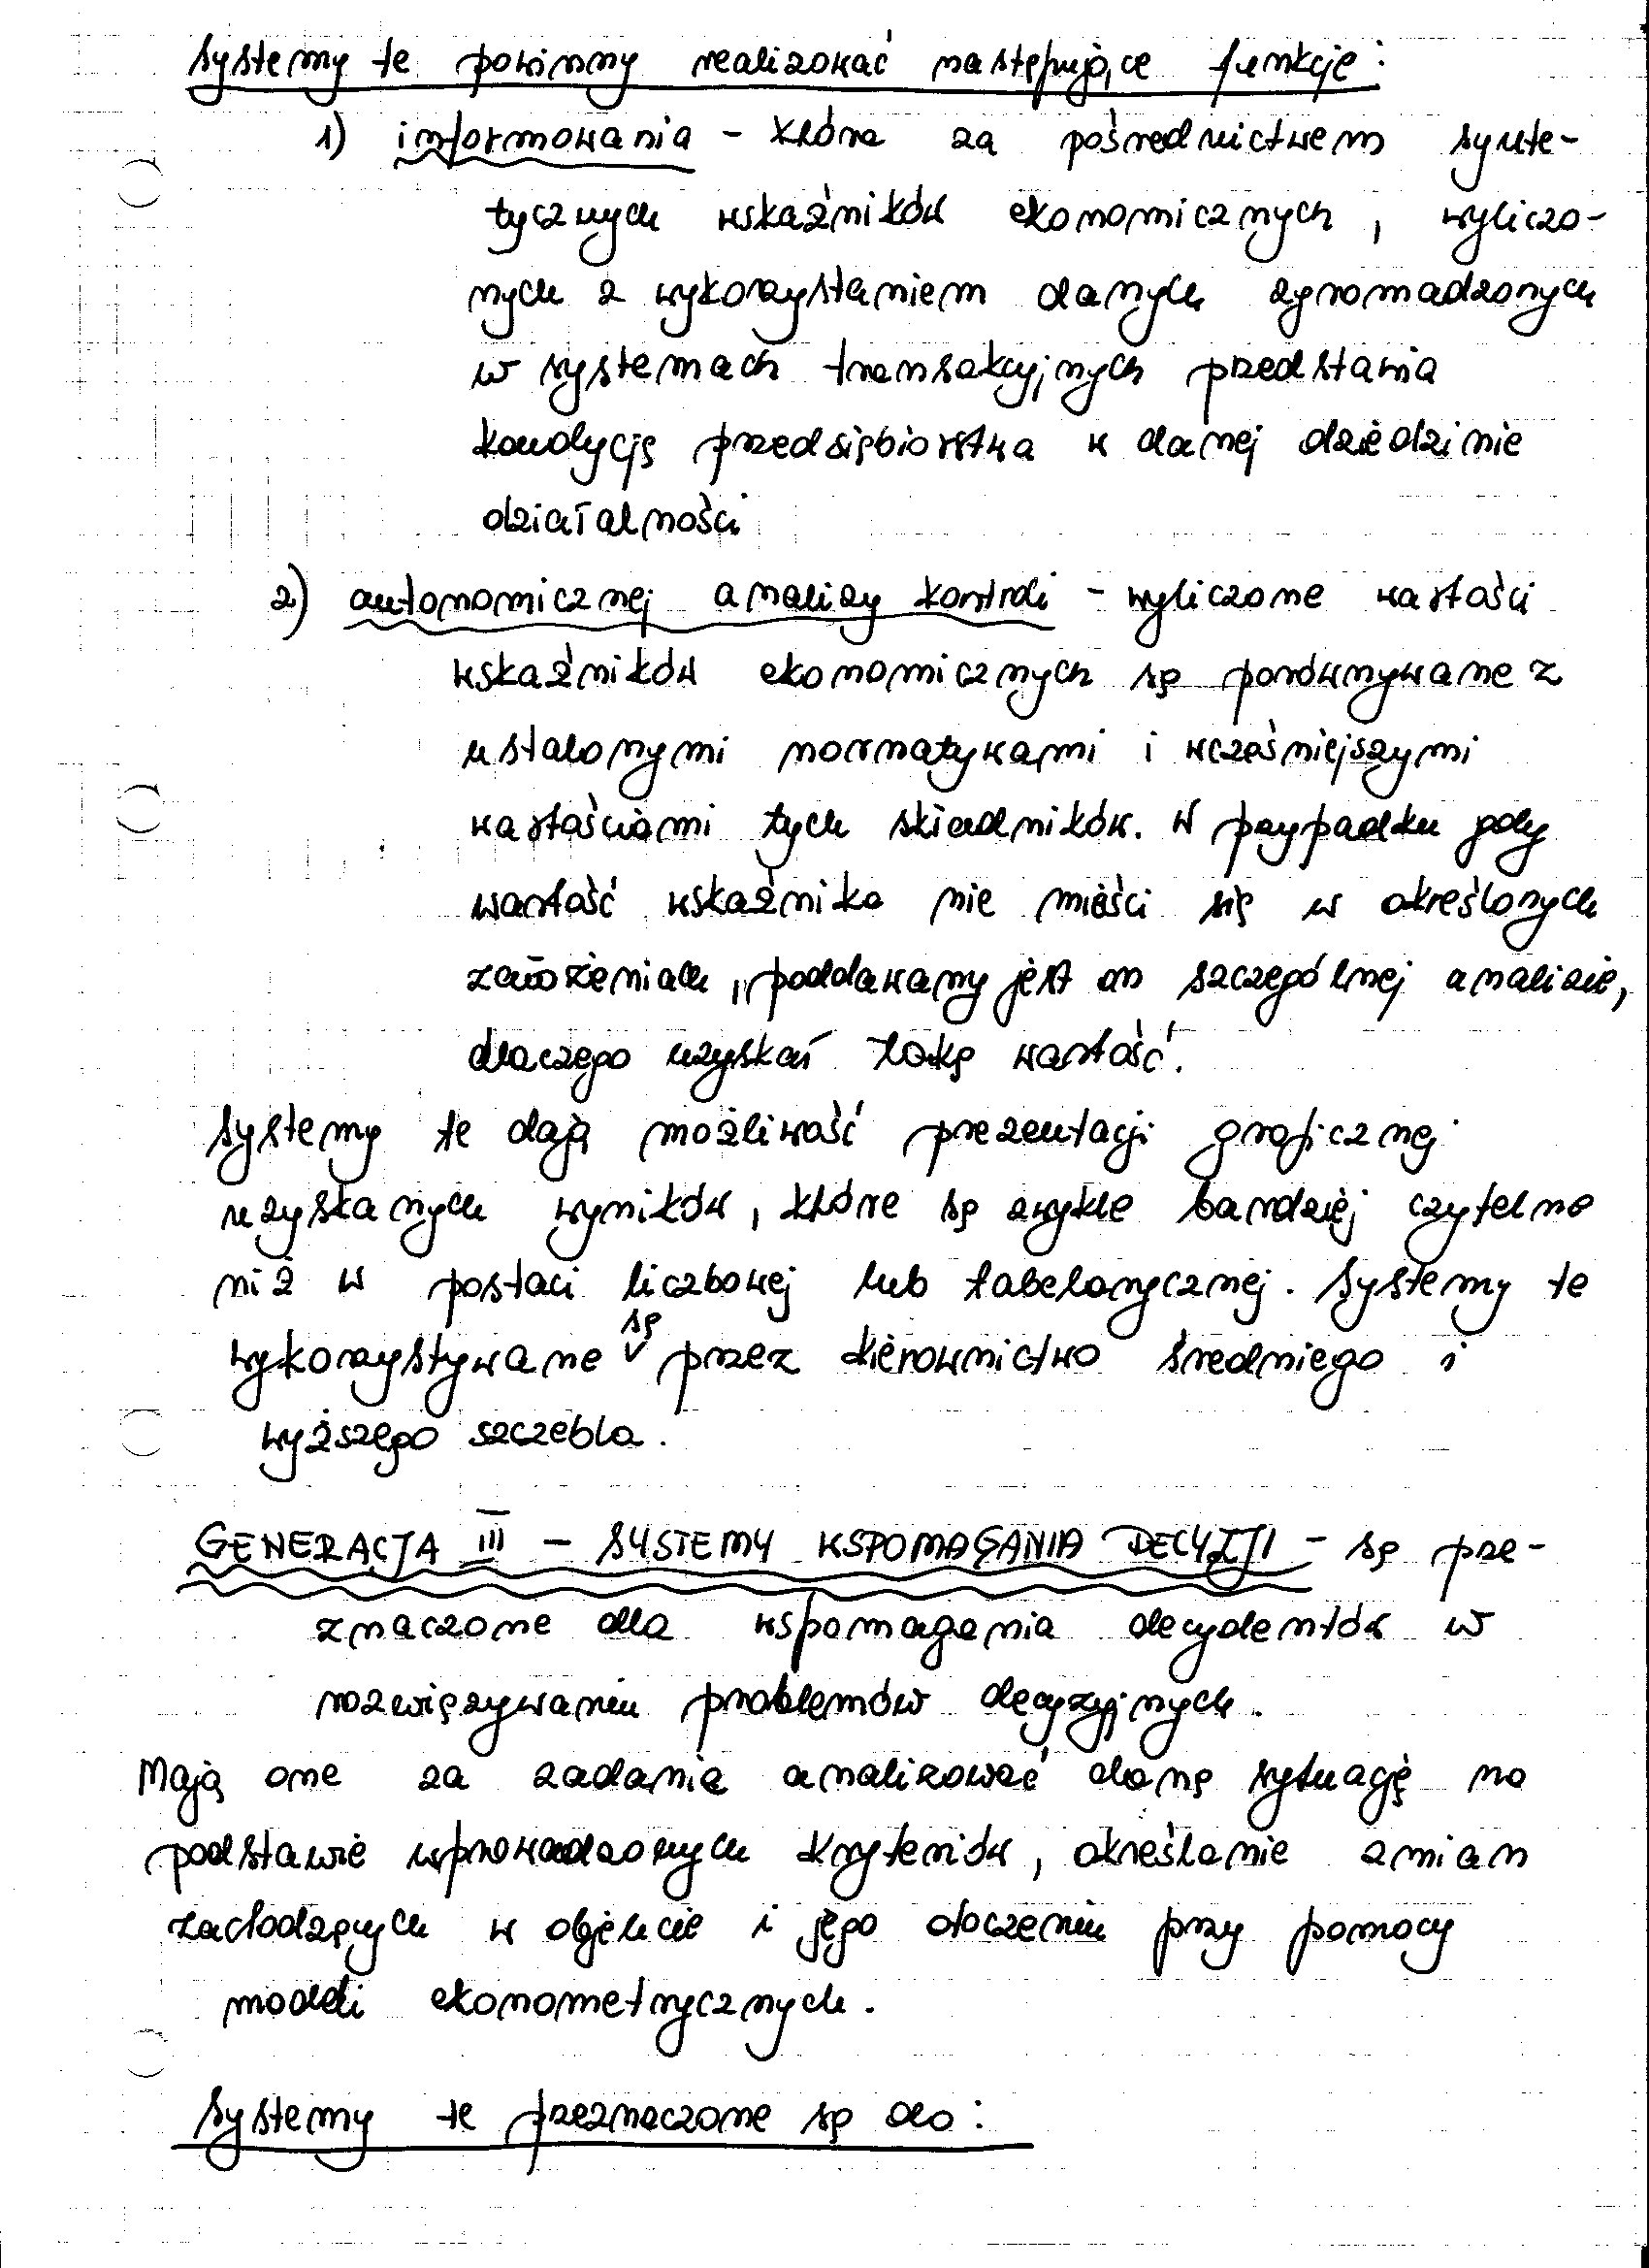 Systemy te powinny realizować następujące funkcje:
1) informowania – która za pośrednictwem synte-
tycznych wskaźników ekonomicznych, wyliczo-
nych z wykorzystaniem danych zgromadzonych
w systemach transakcyjnych przedstawia
kondycję przedsiębiorstwa w danej dziedzinie
działalności
2) autonomicznej analizy kontroli – wyliczone wartości
wskaźników ekonomicznych są porównywane z
ustalonymi normatywami i wcześniejszymi
wartościami tych składników. W przypadku gdy
wartość wskaźnika nie mieści się w określonych
założeniach, poddawany jest on szczególnej analizie,
dlaczego uzyskał taką wartość.
Systemy te dają możliwość prezentacji graficznej
uzyskanych wyników, które są zwykle bardziej czytelne
niż w postaci liczbowej lub tabelarycznej. Systemy te
wykorzystywane są przez kierownictwo średniego i
wyższego szczebla.
GENERACJA III – SYSTEMY WSPOMAGANIA DECYZJI – są prze-
znaczone dla wspomagania decydentów w
rozwiązywaniu problemów decyzyjnych.
Mają one za zadanie analizować daną sytuację na
podstawie wprowadzonych kryteriów, określanie zmian
zachodzących w obiekcie i jego otoczeniu przy pomocy
modeli ekonometrycznych.
Systemy te przeznaczone są do: